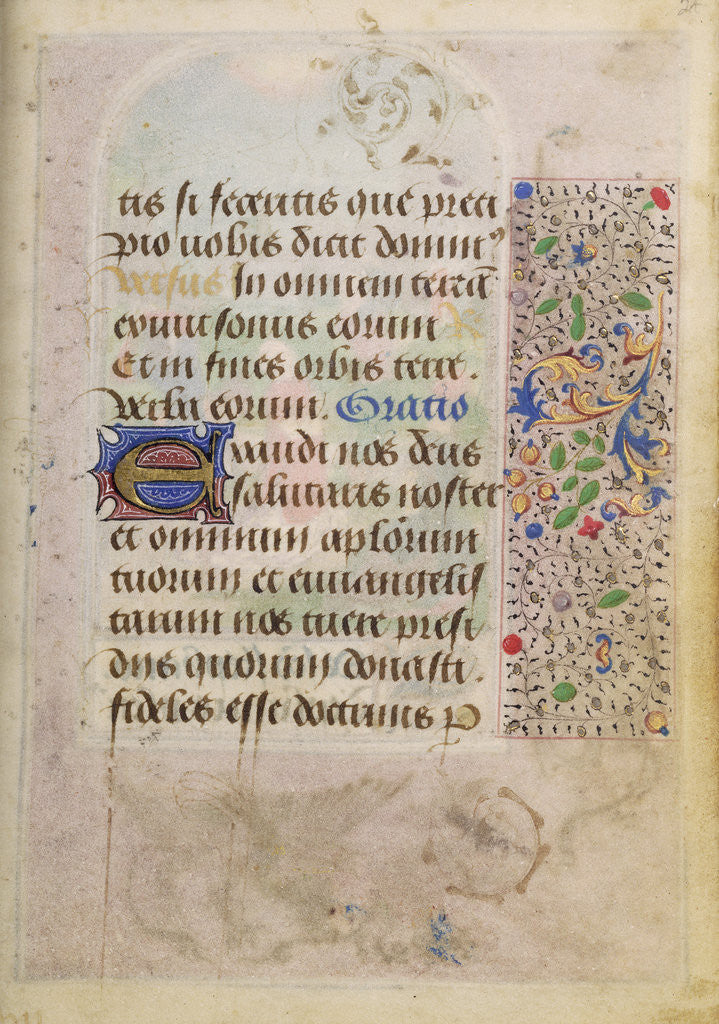 tis si feceritis que preci
pio uobis dicit domin⁹
Versus In omnem terrā
exiuit sonus eorum R
Et in fines orbis terre.
Verba eorum. Oratio
Exaudi nos deus
salutaris noster
et omnium aplōrum
tuorum et euuangelis
tarum nos tuere presi
dijs quorum donasti.
fideles esse doctrinis ꝑ